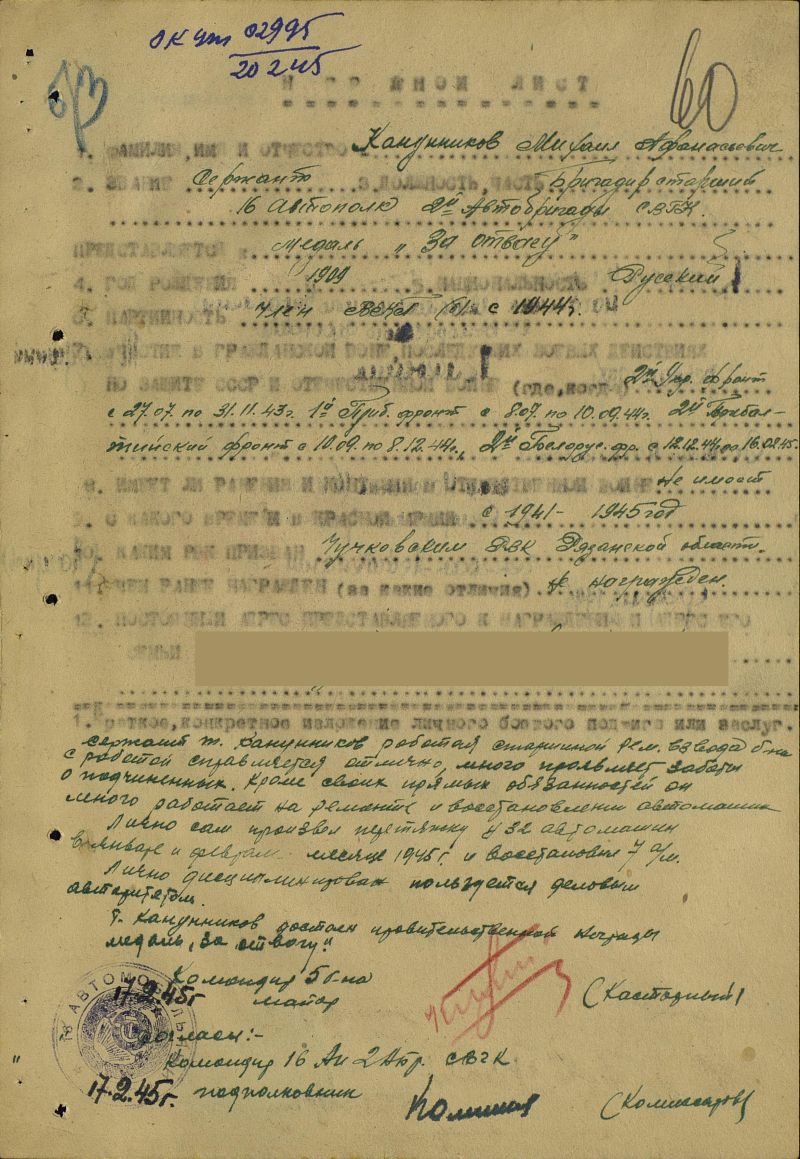 ОК ут 0295
20 2 45
60
НАГРАДНОЙ ЛИСТ
1. ФАМИЛИЯ, ИМЯ И ОТЧЕСТВО Канунников Михаил Афанасьевич
2. ЗВАНИЕ Сержант 3. ДОЛЖНОСТЬ, ЧАСТЬ Бригадир старший
16 Автополк 2й Автобригады СВГК.
ПРЕДСТАВЛЯЕТСЯ к медаль „За отвагу"
4. ГОД РОЖДЕНИЯ 1909 5. НАЦИОНАЛЬНОСТЬ Русский
6. ПАРТИЙНОСТЬ Член ВКП(б) с 1944г.
7. УЧАСТИЕ В ГРАЖДАНСКОЙ ВОЙНЕ ПОСЛЕДУЮЩИХ БОЕВЫХ ДЕЙСТВИЯХ
ПО ЗАЩИТЕ СССР И ОТЕЧЕСТВЕННОЙ ВОЙНЕ (где, когда) 2й Укр. фронт
с 27.07. по 31.11.43г. 1й Приб. фронт с 8.07. по 10.09.44г. 2й Прибал-
тийский фронт с 10.09. по 8.12.44г., 2й Белорус. фр. с 12.12.44 по 16.02.45.
8. ИМЕЕТ ЛИ РАНЕНИЯ И КОНТУЗИИ В ОТЕЧЕСТВЕННОЙ ВОЙНЕ Не имеет
9. С КАКОГО ВРЕМЕНИ В КРАСНОЙ АРМИИ с 1941 - 1945 год
10. КАКИМ РВК ПРИЗВАН Чучковским РВК Рязанской области.
11. ЧЕМ РАНЕЕ НАГРАЖДЕН (за какие отличия) не награжден.
12. ПОСТОЯННЫЙ АДРЕС ПРЕДСТАВЛЯЕМОГО К НАГРАЖДЕНИЮ И АДРЕС ЕГО
СЕМЬИ
1. Краткое, конкретное изложение личного боевого подвига или заслуг.
сержант т. Канунников работая старшиной рем. взвода б-на
с работой справляется отлично, много проявляет заботы
о подчиненных. Кроме своих прямых обязанностей он
много работает на ремонте и восстановлении автомашин
Лично сам произвел перетяжку 32 автомашин
в январе и феврале месяце 1945 г. и восстановил 7 а/м.
Лично дисциплинирован пользуется деловым
авторитетом.
т. Канунников достоин правительственной награды
медаль „За отвагу".
Командир 5 б-на
17.2.45г майор (Касторный)
Согласен:-
Командир 16 Ап 2 Абр. СВГК
17.2.45г. подполковник (Комиссаров)
АВТОМОБИЛЬН